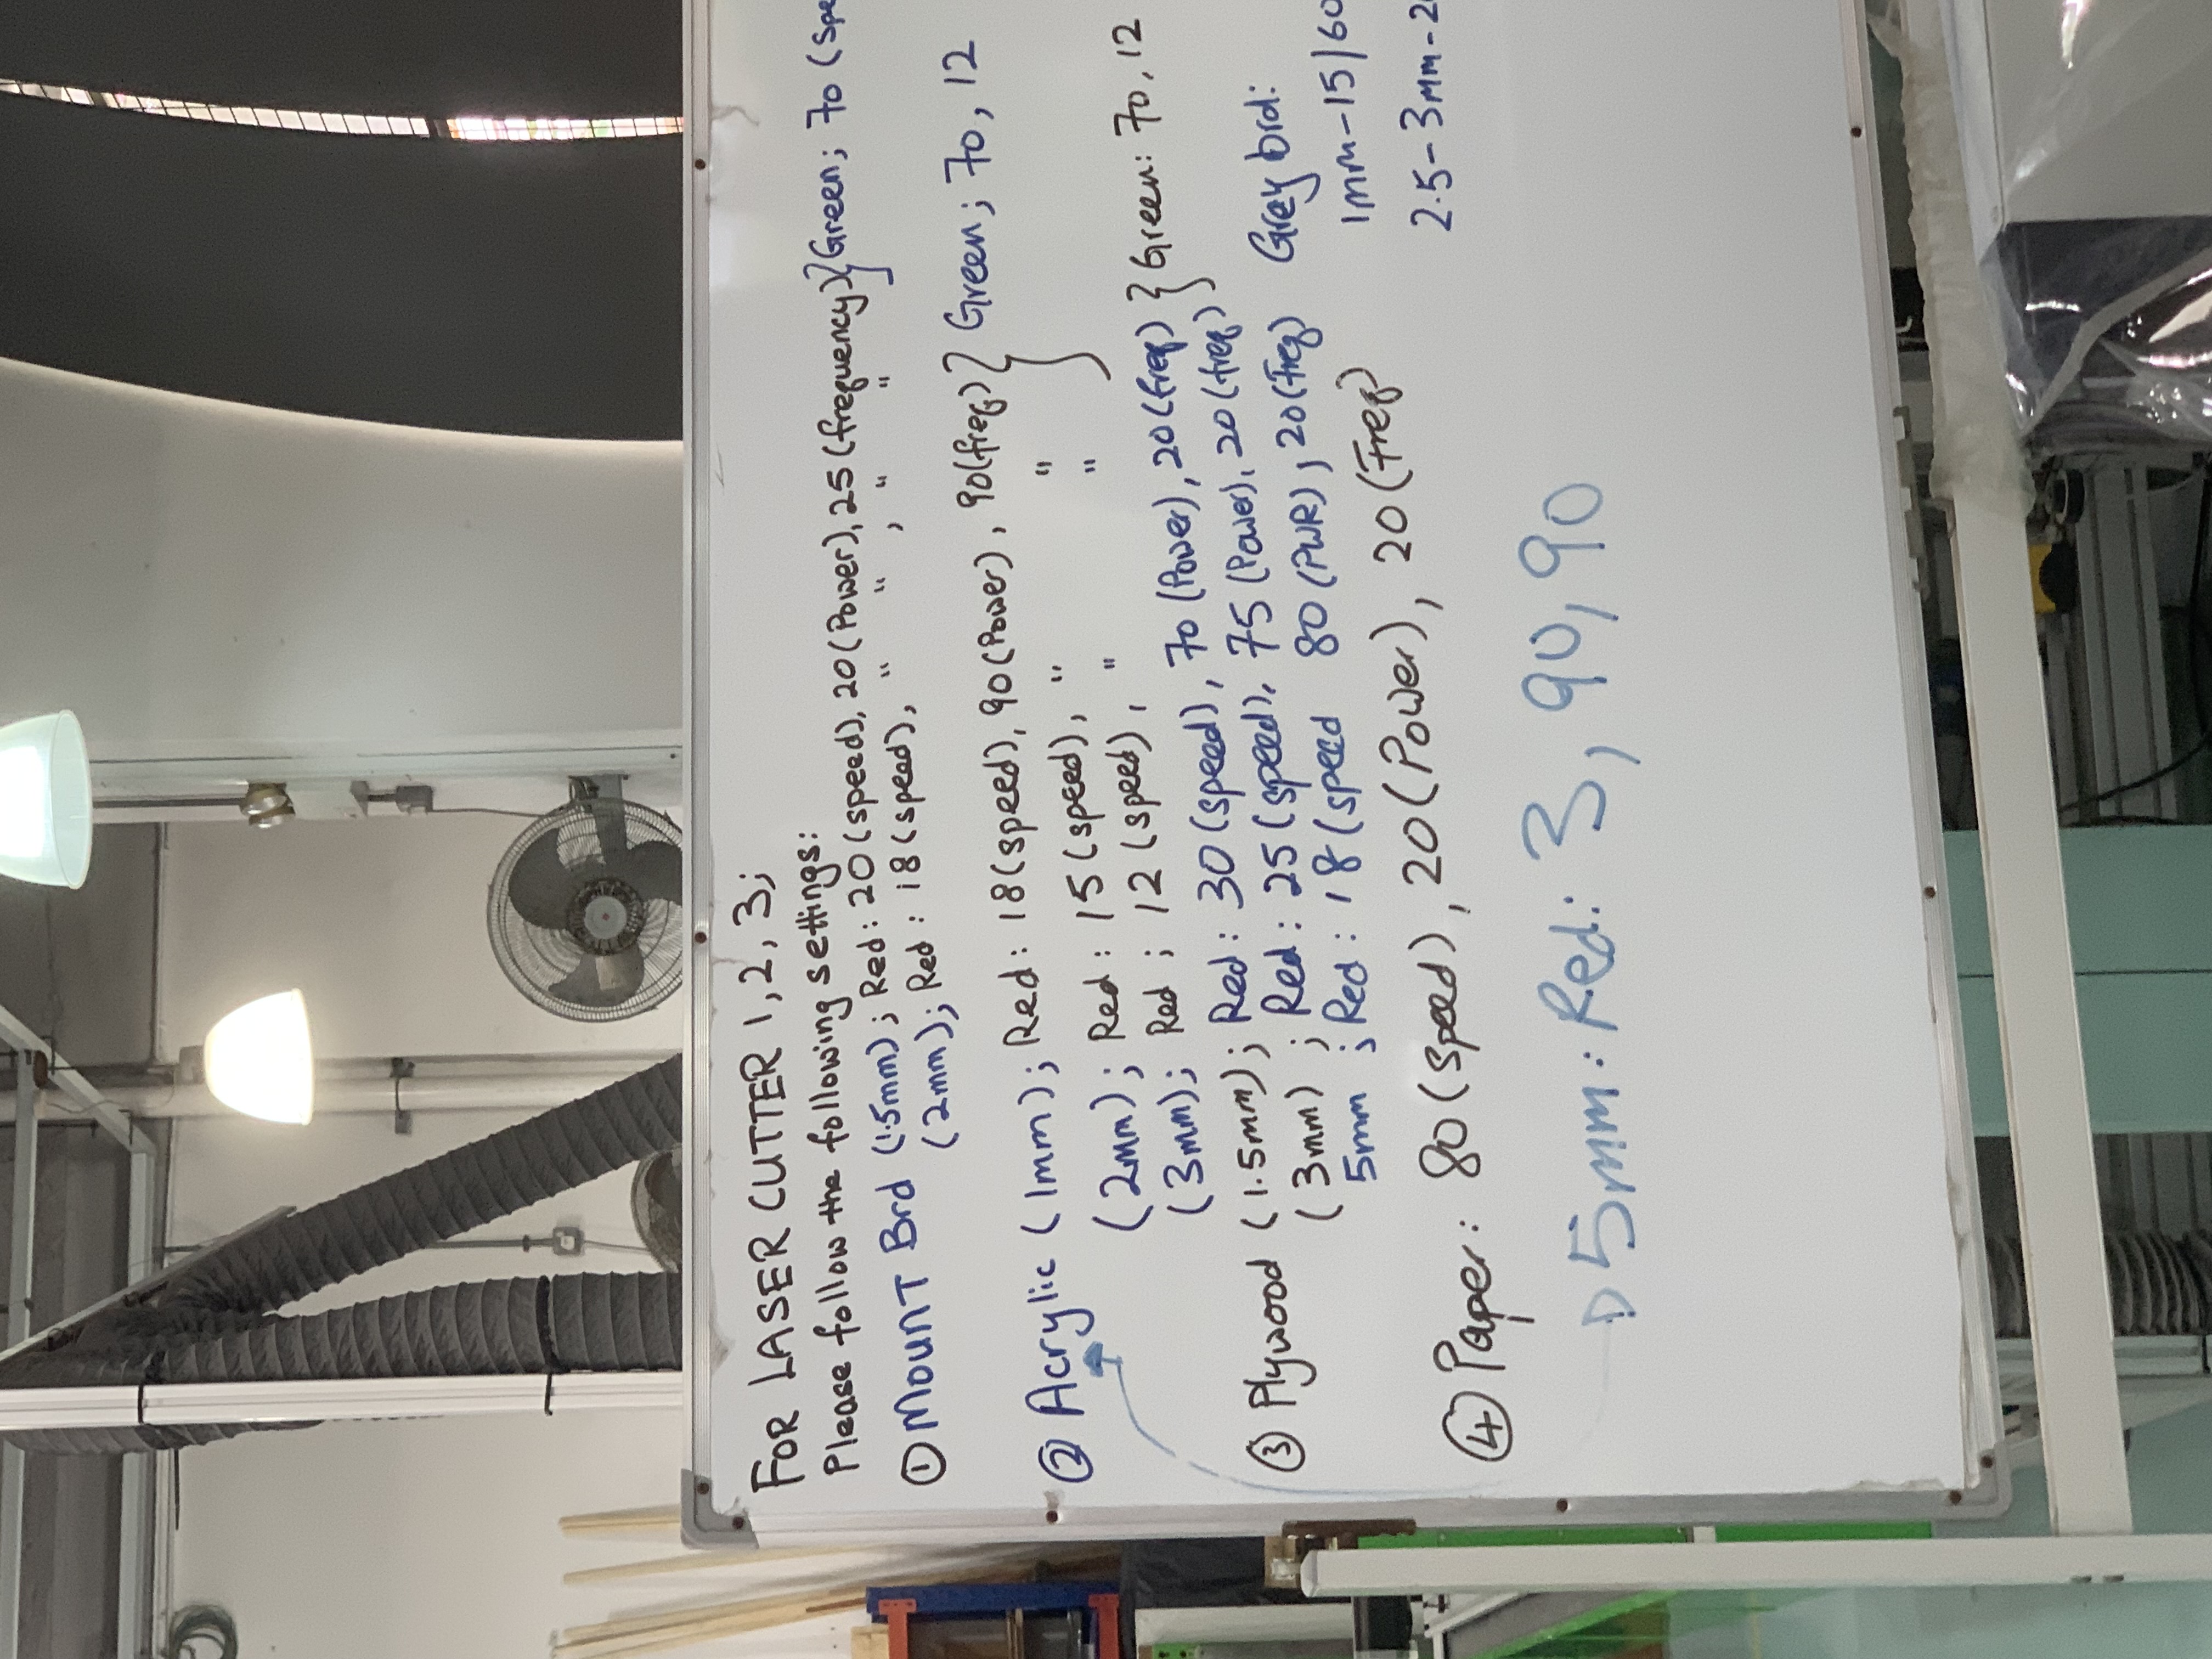 FOR LASER CUTTER 1, 2, 3;
Please follow the following settings:
① MOUNT Brd (1.5mm); Red: 20 (speed), 20 (Power), 25 (frequency) } Green; 70 (Spe
(2mm); Red: 18 (speed), " " , " "
② Acrylic (1mm); Red: 18 (speed), 90 (Power), 90 (freq.) } Green; 70, 12
(2mm); Red: 15 (speed), " "
(3mm); Red; 12 (speed), " "
③ Plywood (1.5mm); Red: 30 (speed), 70 (Power), 20 (freq) } Green: 70, 12
(3mm) ; Red: 25 (speed), 75 (Power), 20 (freq)
5mm ; Red: 18 (speed 80 (PWR), 20 (Freq)
Grey brd:
1mm-15/60
2.5-3mm-2
④ Paper: 80 (Speed), 20 (Power), 20 (Freq)
5mm: Red: 3, 90, 90